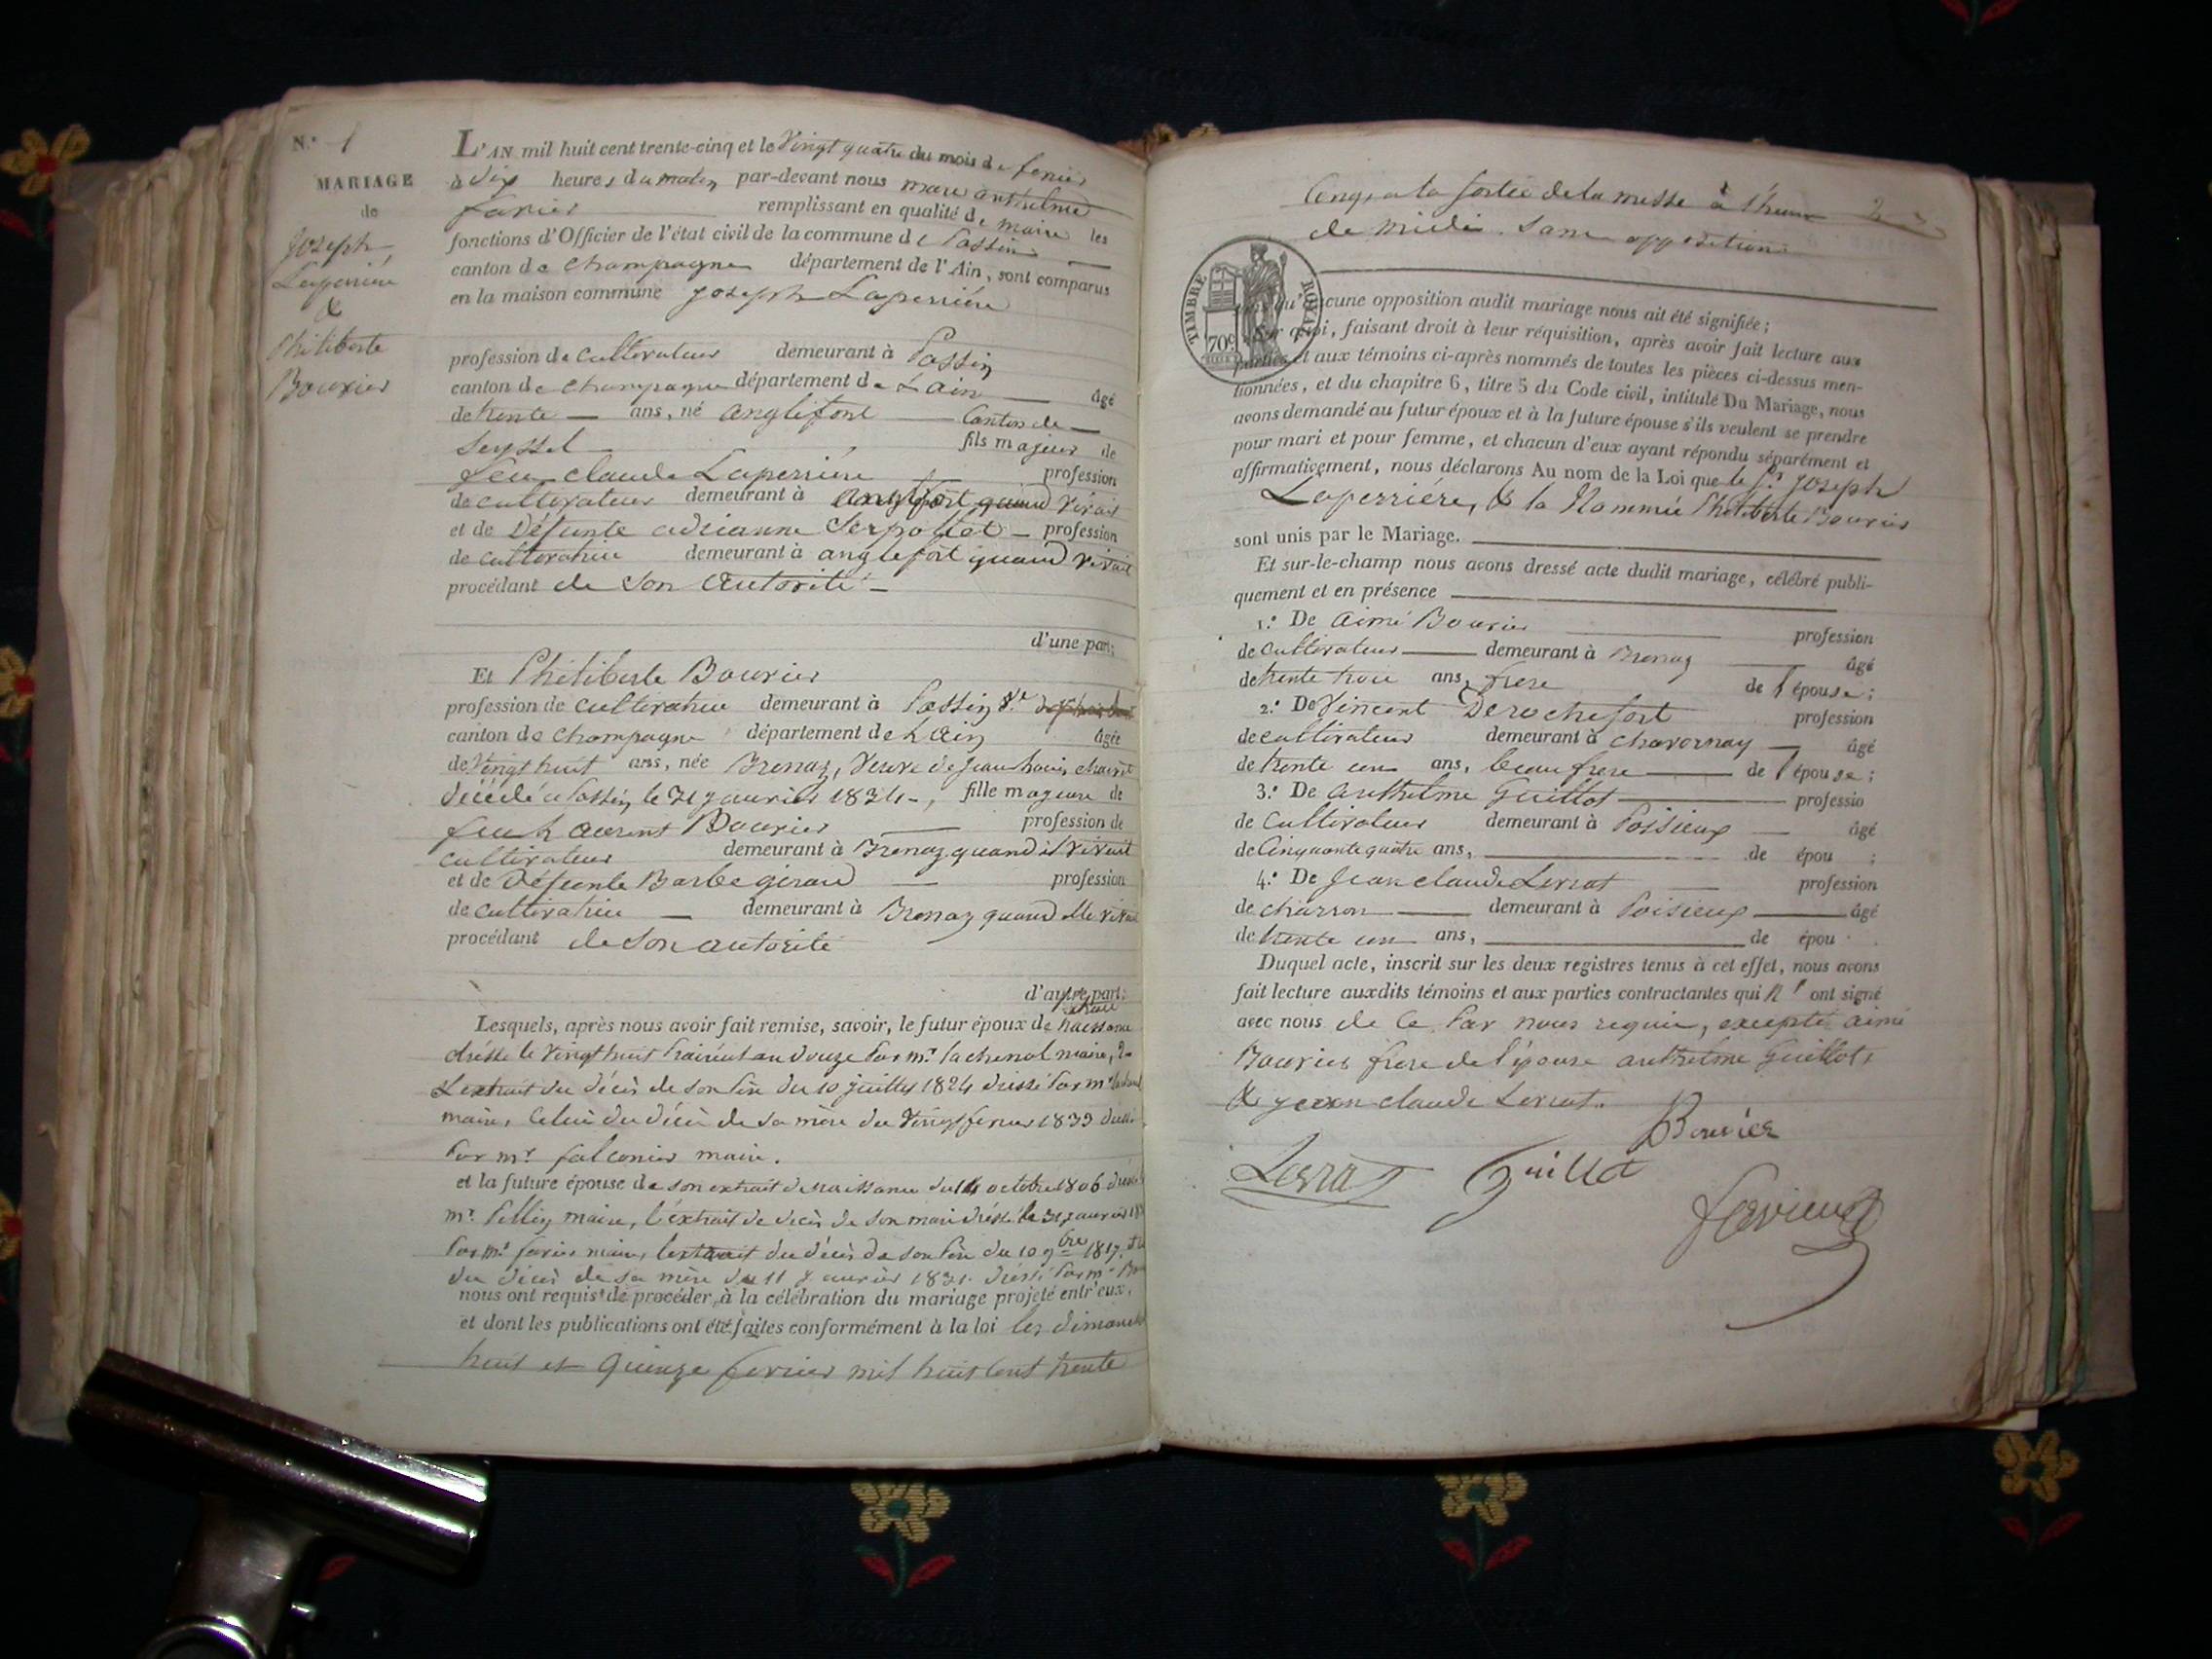 N.° 1
MARIAGE
de
Joseph
Laperriére
&
Philiberte
Bouvier
L'AN mil huit cent trente-cinq et le Vingt quatre du mois de fevrier
à dix heures du matin par-devant nous marc anthelme
favier remplissant en qualité de maire les
fonctions d'Officier de l'état civil de la commune de Passin
canton de Champagne département de l'Ain, sont comparus
en la maison commune Joseph Laperriére
profession de Cultivateur demeurant à Passin
canton de Champagne département de L'ain âgé
de trente ans, né anglefort Canton de
Seyssel fils majeur de
feu claude Laperriére profession
de cultivateur demeurant à anglefort quand vivait
et de Défunte adrianne Serpollet profession
de cultivatrice demeurant à anglefort quand vivait
procédant de son autorité
d'une part;
Et Philiberte Bouvier
profession de cultivatrice demeurant à Passin
canton de Champagne département de L'ain âgée
de Vingt huit ans, née Brenaz, Veuve de Jean Louis
décédé a Passin le 31 janvier 1834, fille majeure de
feu Laurent Bouvier profession de
cultivateur demeurant à Brenaz quand il vivait
et de Défunte Barbe girard profession
de cultivatrice demeurant à Brenaz quand elle vivait
procédant de son autorité
d'autre part;
Lesquels, après nous avoir fait remise, savoir, le futur époux de naissance
dréssé le vingt huit Prairéal an douze Par mr. Lachenal maire,
L'extrait du décès de son Père du 10 juillet 1824 dréssé Par mr.
maire, Celui du décès de sa mère du Vingt fevrier 1833
Par mr. falconier maire.
et la future épouse de son extrait de naissance du 14 octobre 1806
mr. Pellin maire, l'extrait de décès de son mari dréssé le 31 janvier
Par mr. favier maire, l'extrait du décès de son Père du 10 9bre 1817.
du décès de sa mère du 11 janvier 1831. dréssé Par mr.
nous ont requis de procéder, à la célébration du mariage projeté entr'eux,
et dont les publications ont été faites conformément à la loi les dimanches
huit et quinze fevrier mil huit cent trente
Cinq, a la sortie de la messe à l'heure 2
de midi. Sans opposition.
TIMBRE ROYAL
70c
qu'aucune opposition audit mariage nous ait été signifiée;
Sur quoi, faisant droit à leur réquisition, après avoir fait lecture aux
parties et aux témoins ci-après nommés de toutes les pièces ci-dessus men-
tionnées, et du chapitre 6, titre 5 du Code civil, intitulé Du Mariage, nous
avons demandé au futur époux et à la future épouse s'ils veulent se prendre
pour mari et pour femme, et chacun d'eux ayant répondu séparément et
affirmativement, nous déclarons Au nom de la Loi que le Sr. Joseph
Laperriére, & la Nommée Philiberte Bouvier
sont unis par le Mariage.
Et sur-le-champ nous avons dressé acte dudit mariage, célébré publi-
quement et en présence
1.° De Aimé Bouvier profession
de Cultivateur demeurant à Brenaz âgé
de trente trois ans, frere de l'épouse;
2.° De Vincent Derochefort profession
de cultivateur demeurant à Chavornay âgé
de trente un ans, beau frere de l'épouse;
3.° De Anthelme Guillot professio
de Cultivateur demeurant à Poisieux âgé
de Cinquante quatre ans, de épou ;
4.° De Jean claude Lerrat profession
de charron demeurant à Poisieux âgé
de trente un ans, de épou
Duquel acte, inscrit sur les deux registres tenus à cet effet, nous avons
fait lecture auxdits témoins et aux parties contractantes qui n' ont signé
avec nous de Ce Par nous requis, excepté aimé
Bouvier frere de l'épouse anthelme Guillot,
& jean claude Lerrat.
Bouvier
Lerrat Guillot
favier